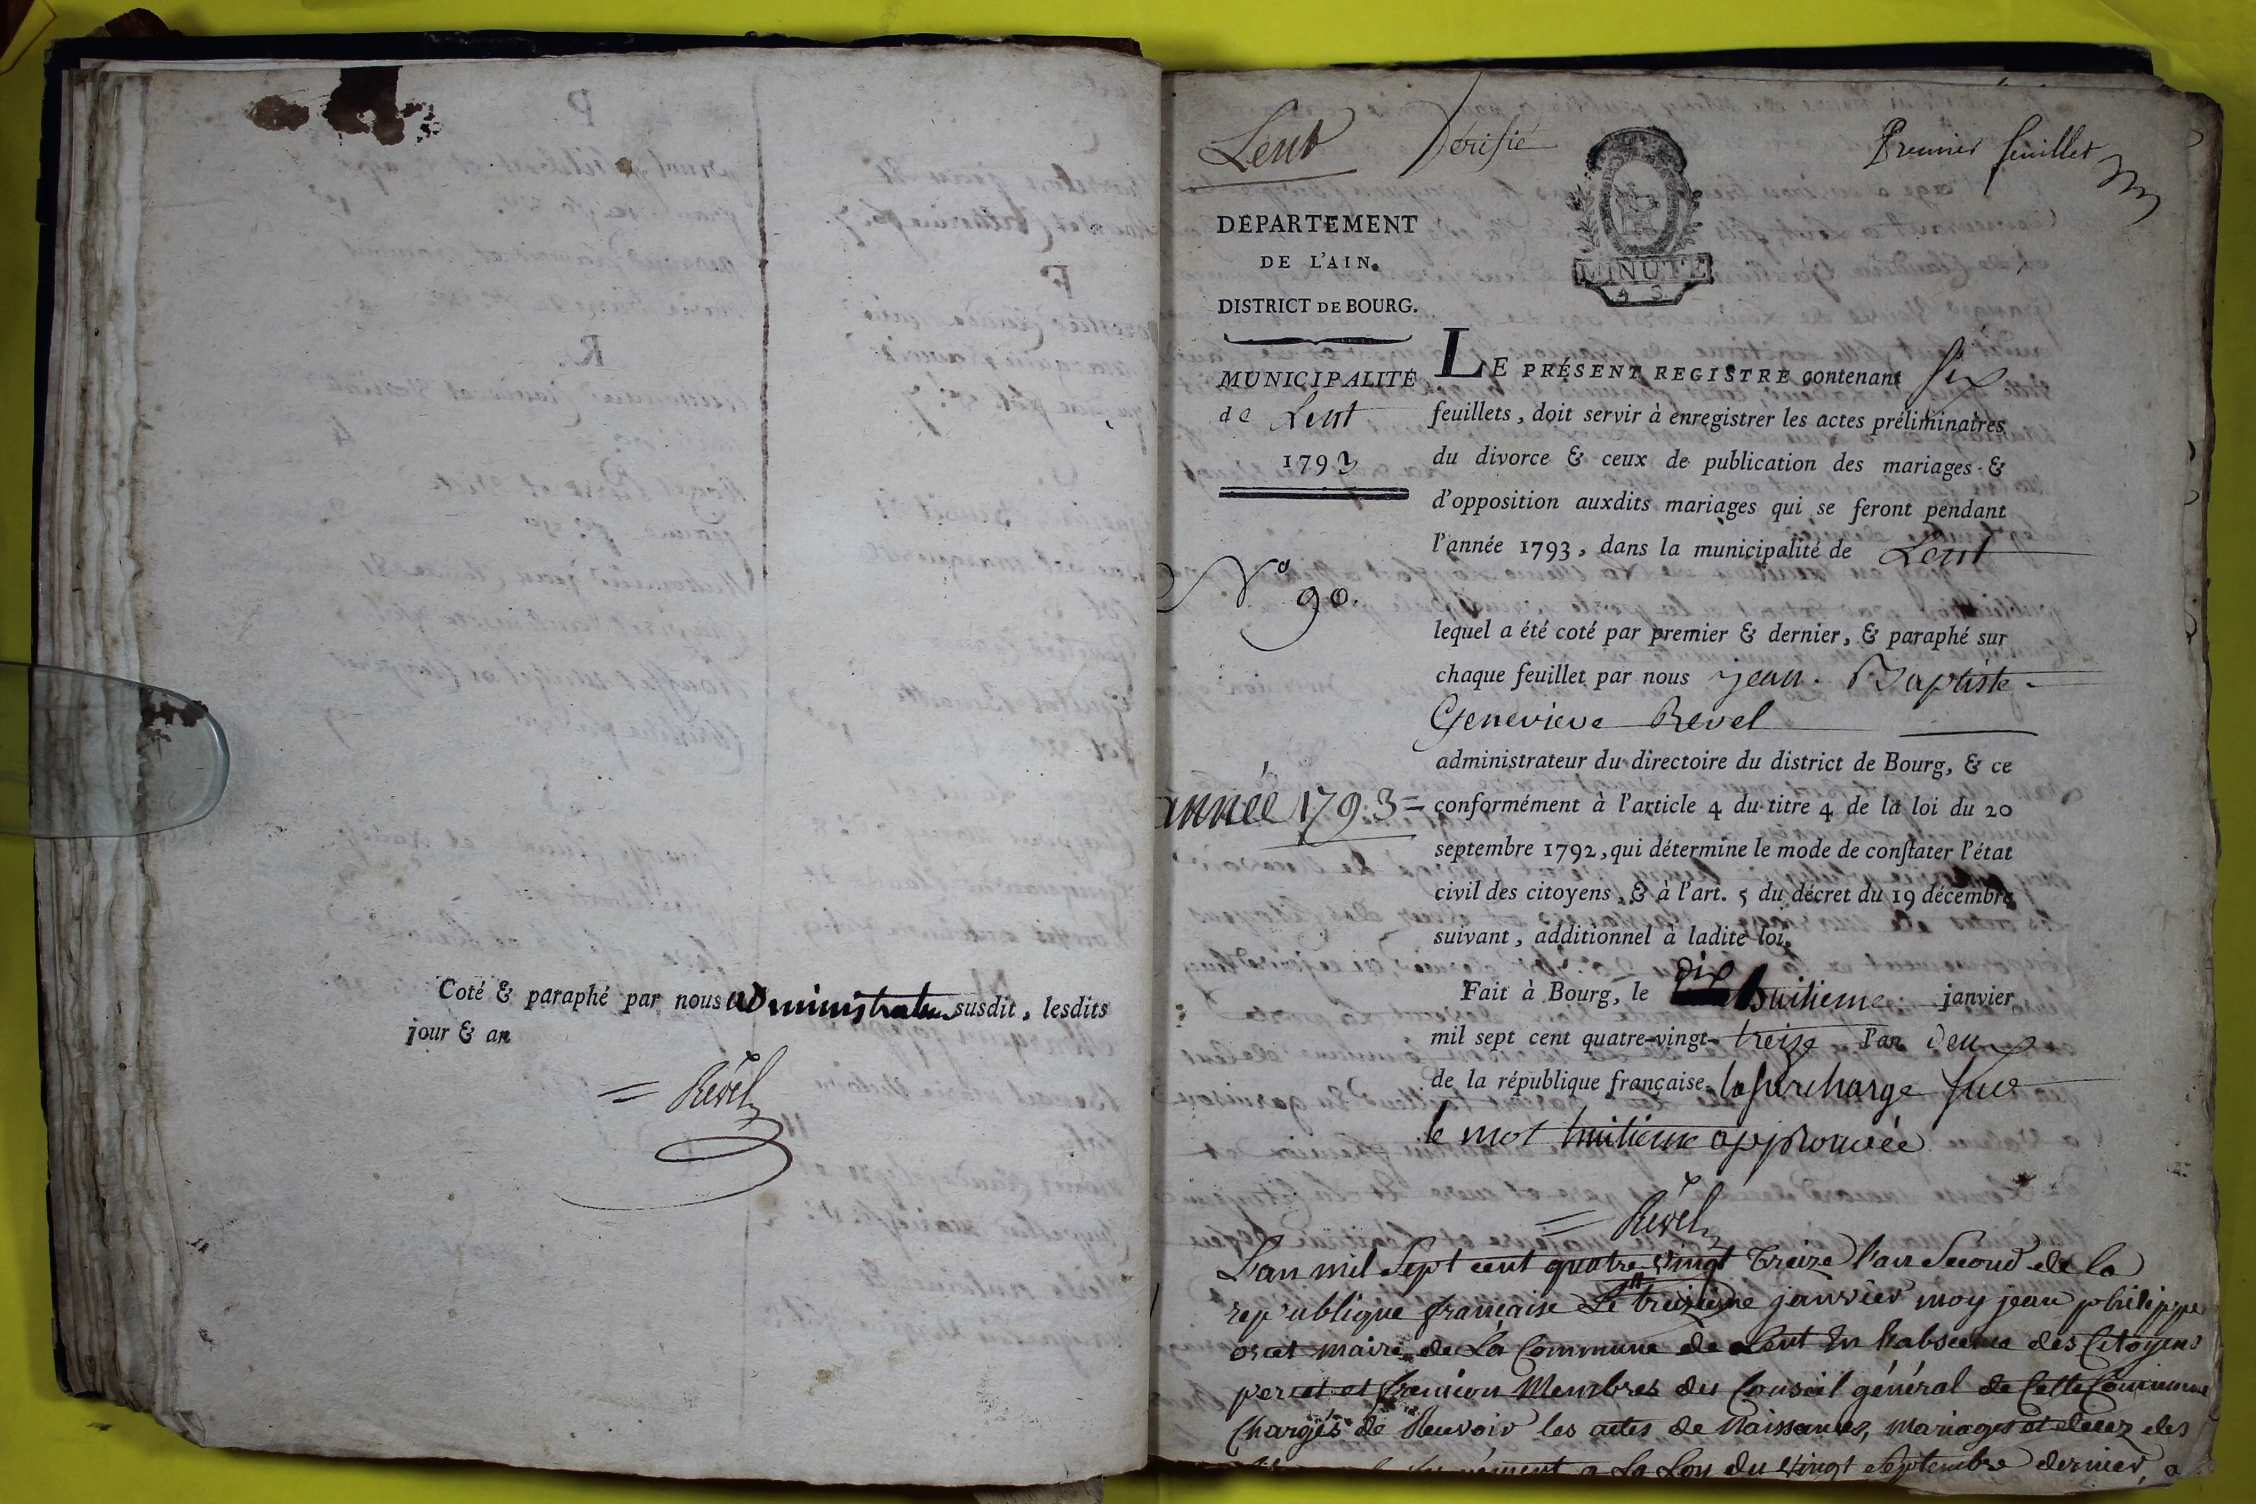 Coté & paraphé par nous administrateur susdit, lesdits
jour & an
= Revel
Lent
Verifié
Premier feuillet
MINUTE
4 S.
DÉPARTEMENT
DE L'AIN.
DISTRICT DE BOURG.
MUNICIPALITÉ
de Lent
1793
N° 90.
année 1793 =
LE PRÉSENT REGISTRE contenant six
feuillets, doit servir à enregistrer les actes préliminaires
du divorce & ceux de publication des mariages &
d'opposition auxdits mariages qui se feront pendant
l'année 1793, dans la municipalité de Lent
lequel a été coté par premier & dernier, & paraphé sur
chaque feuillet par nous jean Baptiste
Genevieve Revel
administrateur du directoire du district de Bourg, & ce
conformément à l'article 4 du titre 4 de la loi du 20
septembre 1792, qui détermine le mode de conſtater l'état
civil des citoyens, & à l'art. 5 du décret du 19 décembre
suivant, additionnel à ladite loi.
Fait à Bourg, le dix huitieme janvier
mil sept cent quatre-vingt-treize l'an deux
de la république française. la surcharge sur
le mot huitieme approuvée
= Revel
L'an mil sept cent quatre vingt treize l'an second de la
republique francaise le treizieme janvier moy jean philippe
maire de la Commune de Lent en l'absence des Citoyens
perret et fremion Membres du Conseil général de Cette Commune
Chargés de Recevoir les actes de Naissances, mariages et decez des
a la Loy du vingt Septembre dernier, a